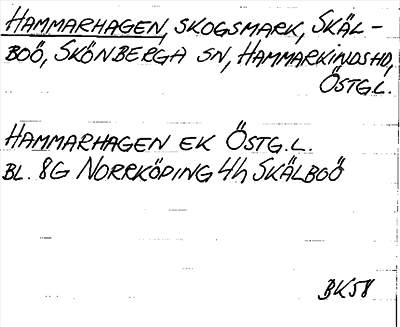 HAMMARHAGEN, SKOGSMARK, SKÄL-
BOÖ, SKÖNBERGA SN, HAMMARKINDSHD,
ÖSTGL.
HAMMARHAGEN EK ÖSTG.L.
BL. 8G NORRKÖPING 4h SKÄLBOÖ
BK58